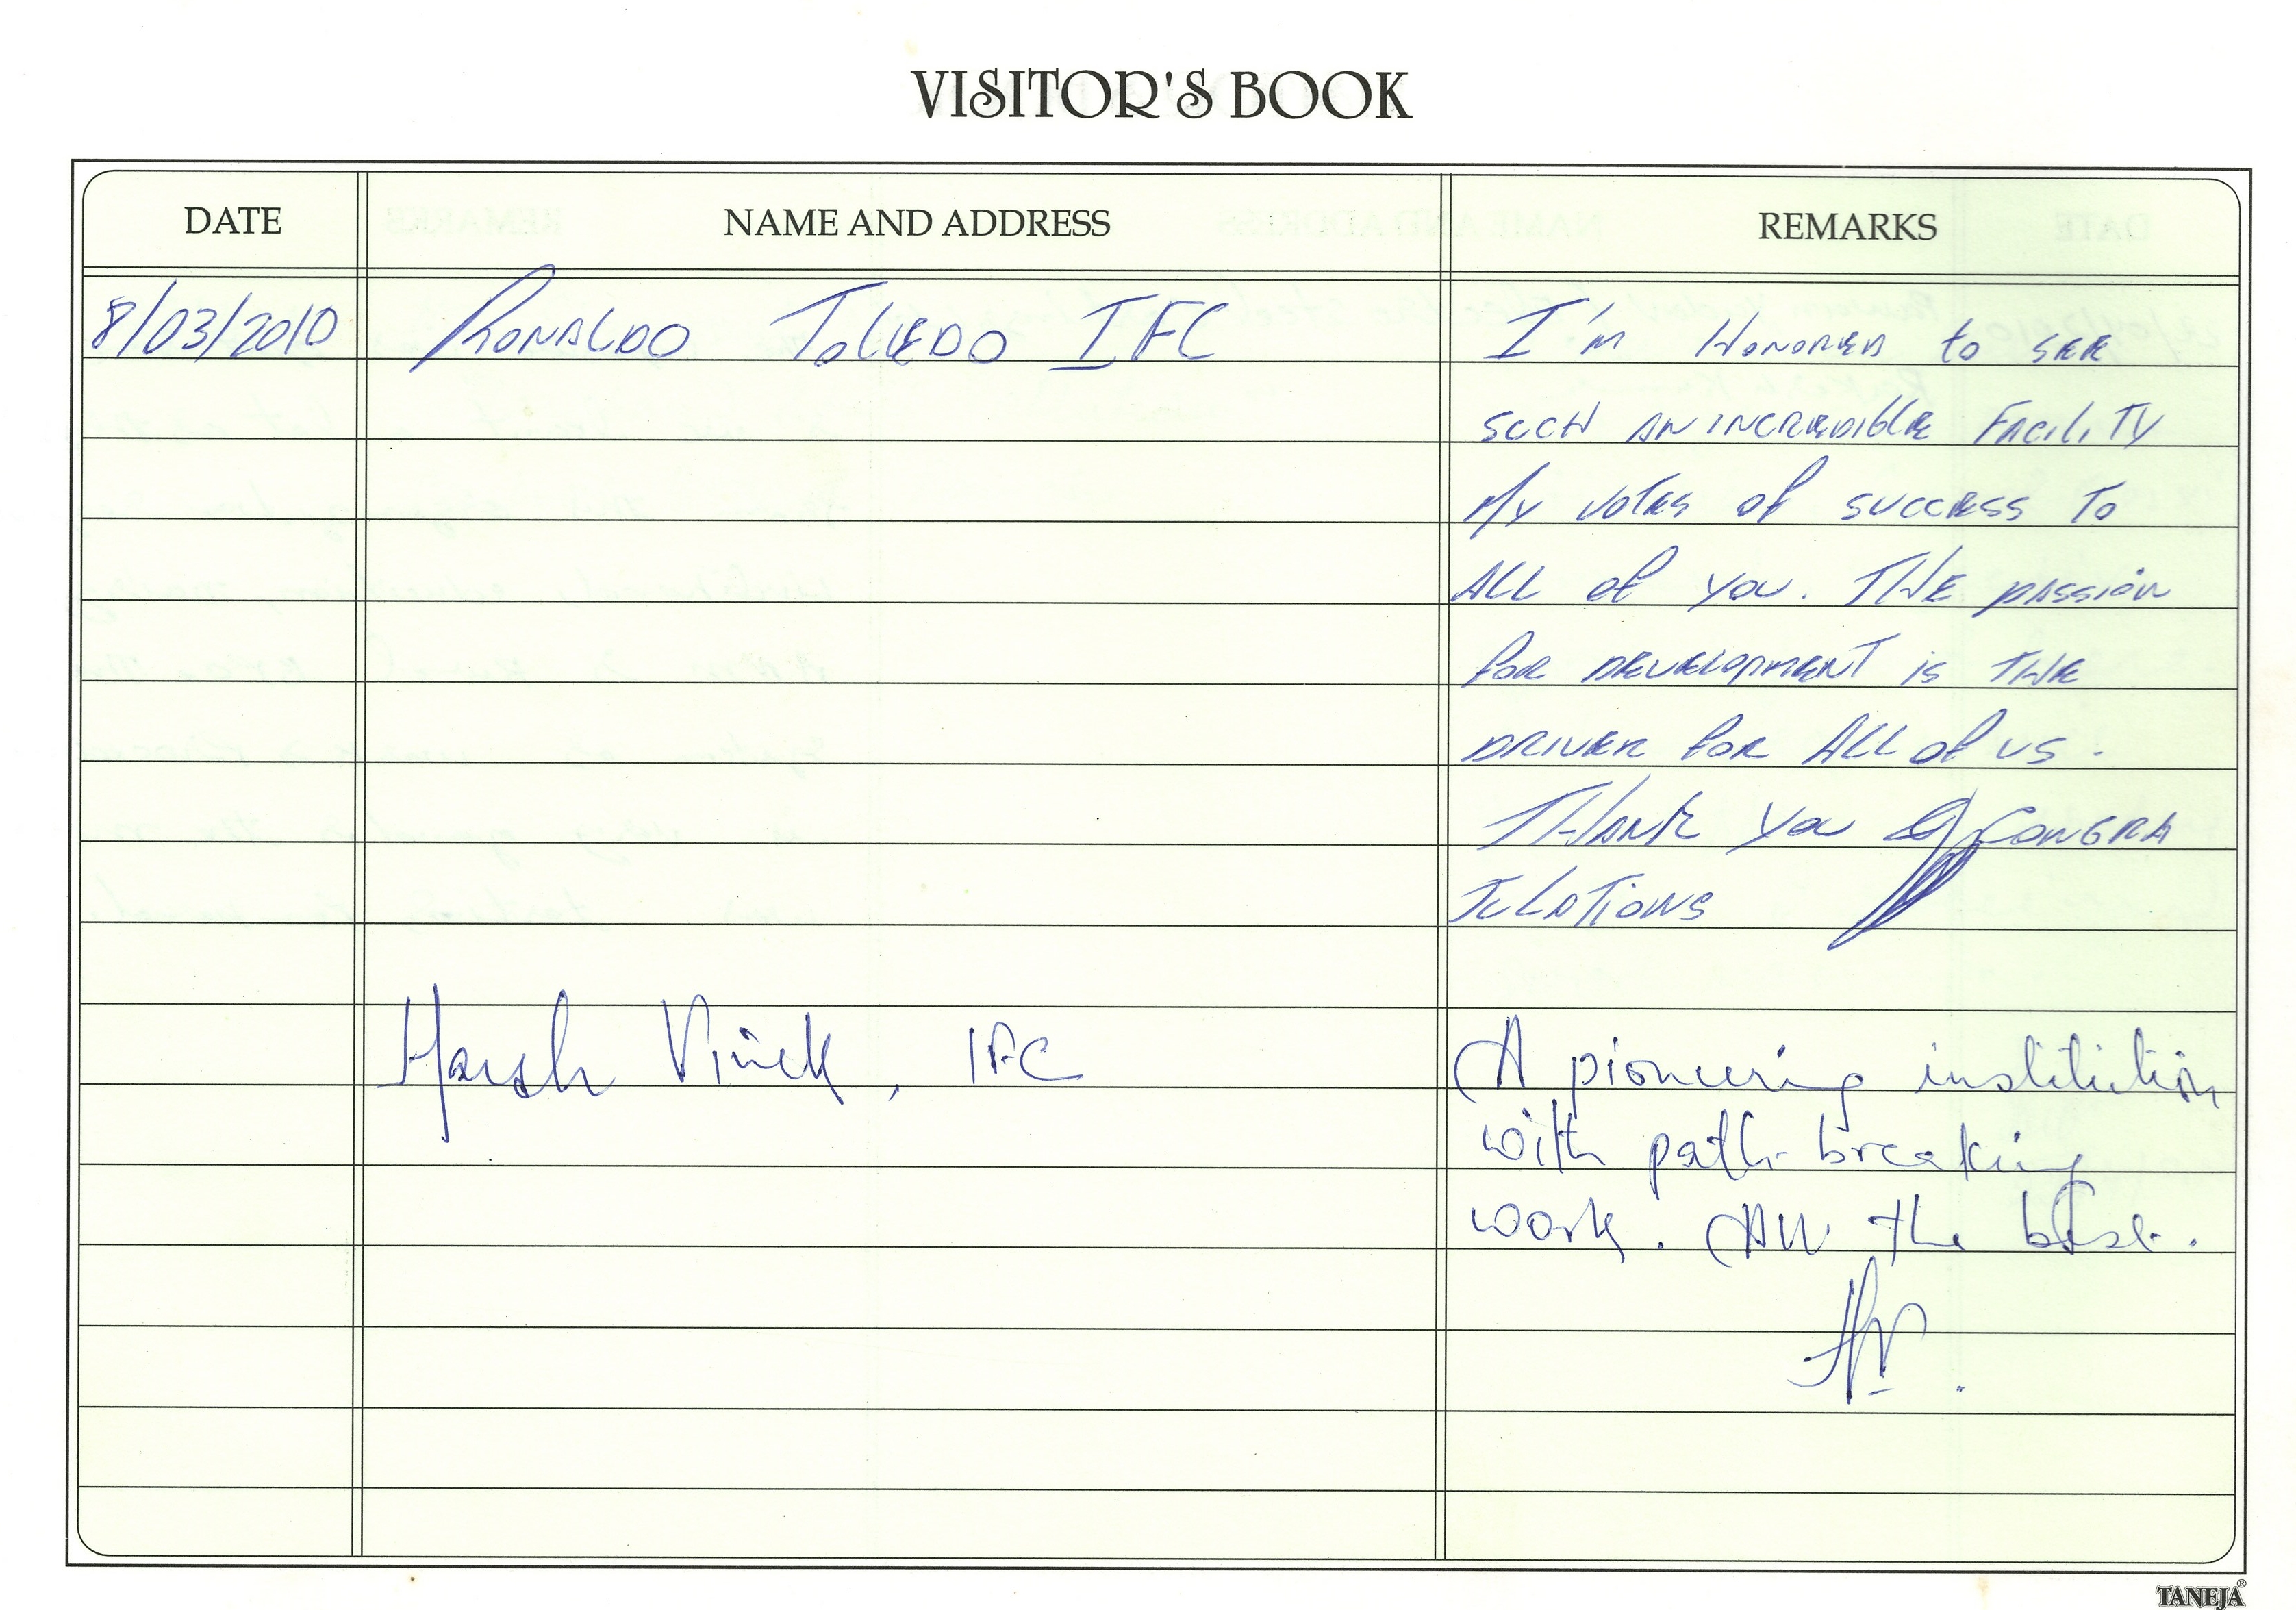 VISITOR'S BOOK
DATE NAME AND ADDRESS REMARKS
8/03/2010 RONALDO TOLEDO IFC I'm HONORED to SEE
SUCH AN INCREDIBLE FACILITY
My votes of success To
ALL of you. THE passion
for DEVELOPMENT is THE
DRIVER for ALL of US.
THANK YOU CONGRA
TULATIONS
Harsh Vivek, IFC A pioneering institution
with path-breaking
work. All the best.
TANEJA®